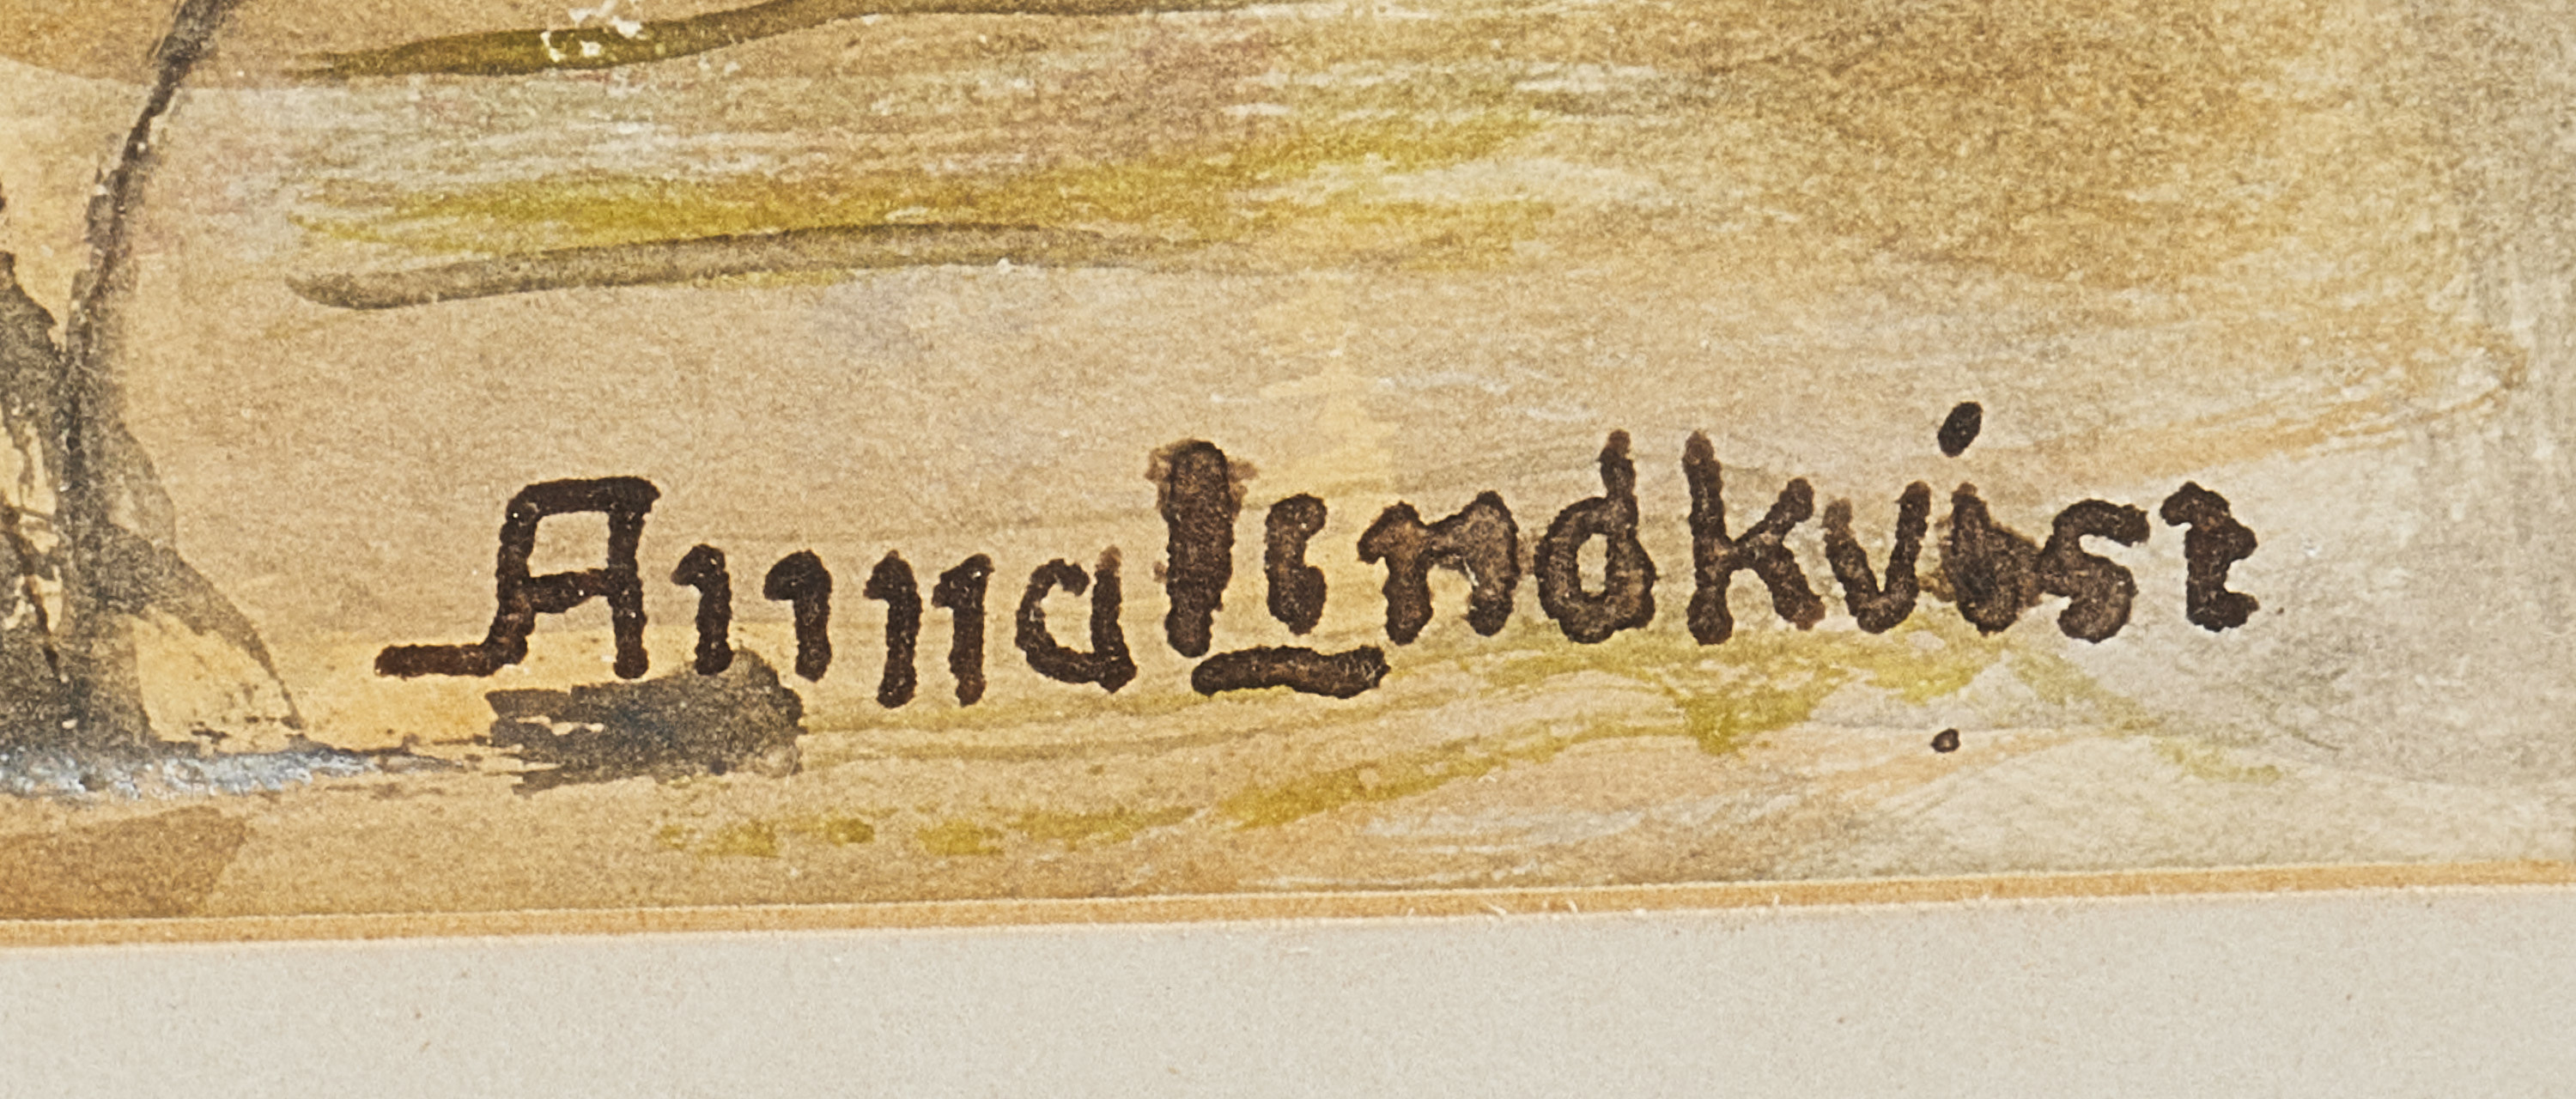 Anna Lindkvist